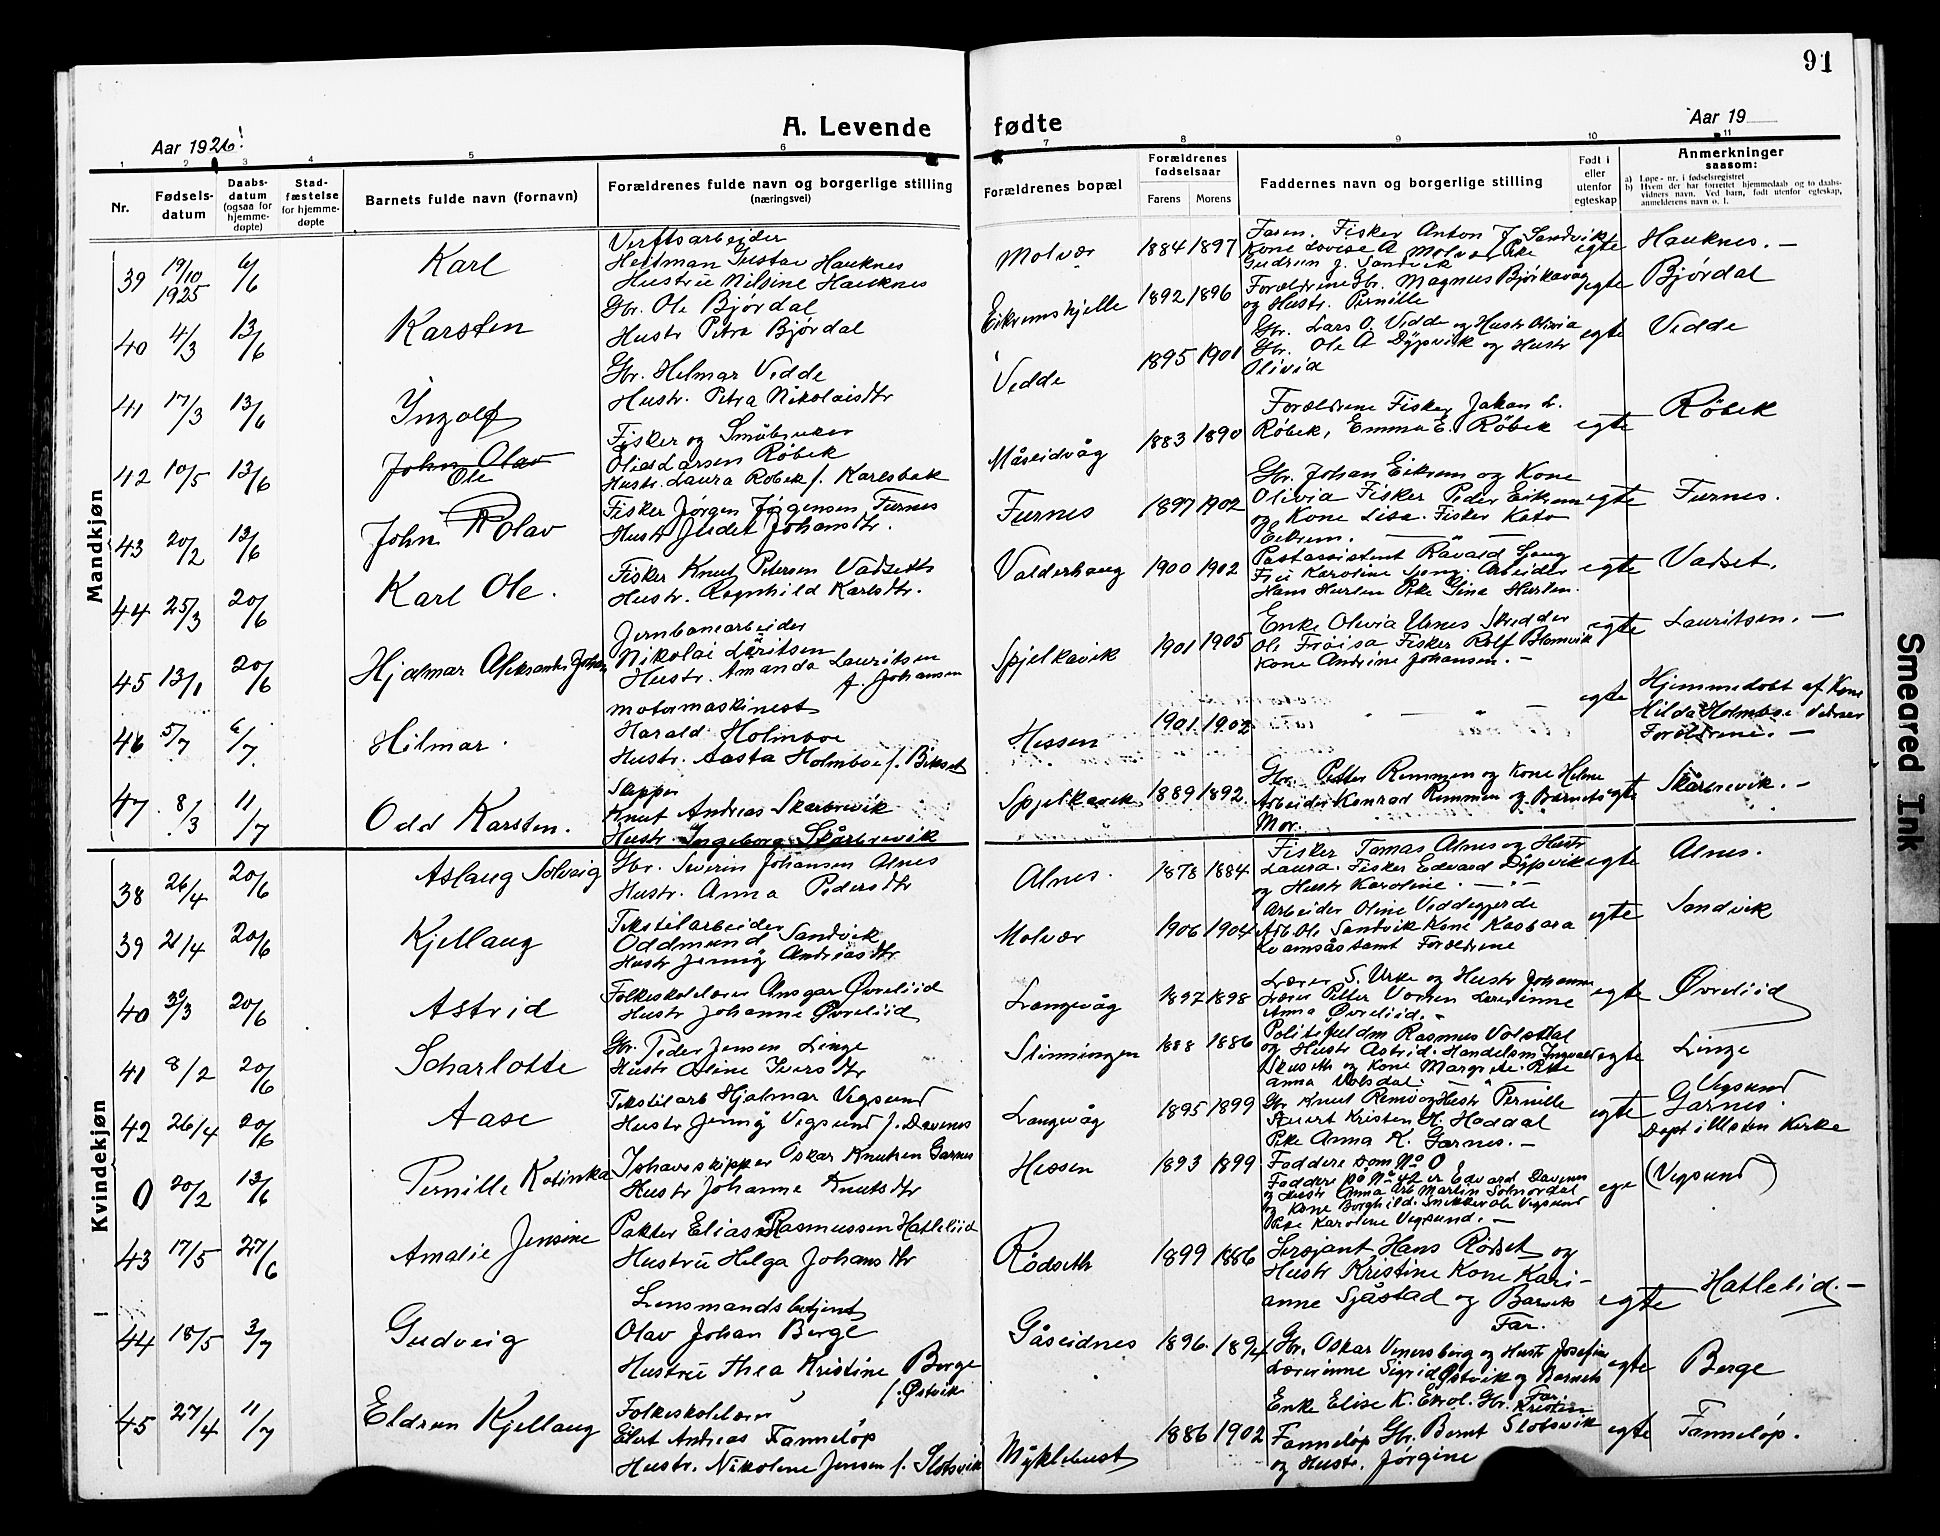 91
A. Levende fødte
Aar 1926!
Aar 19
1 2 3 4 5 6 7 8 9 10 11
Nr.
Fødsels-
datum
Daabs-
datum
(ogsaa for
hjemme-
døpte)
Stad-
fæstelse
for hjemme-
døpte
Barnets fulde navn (fornavn)
Forældrenes fulde navn og borgerlige stilling
(næringsvei)
Forældrenes bopæl
Forældrenes
fødselsaar
Farens Morens
Faddernes navn og borgerlige stilling
Født i
eller
utenfor
egteskap
Anmerkninger
saasom:
a) Løpe-nr. i fødselsregistret
b) Hvem der har forrettet hjemmedaab og to daabs-
vidners navn. Ved barn, født utenfor egteskap,
anmelderens navn o. l.
Mandkjøn
39 19/10 1925 6/6 Karl
Verftsarbeider
Hustru Nilsine Hauknes
Molvær 1884 1897
Faren. Fisker Anton J. Sandvik
Gudrun J. Sandvik
egte Hauknes. —
40 4/3 13/6 Karsten
Gbr. Ole Bjørdal
Hustr. Petra Bjørdal
Eikremshjelle 1892 1896
Forældrene Gbr. Magnus Bjørkavåg
og Hustr. Pernille
egte Bjørdal
41 17/3 13/6 Ingolf
Gbr. Helmar Vedde
Hustr. Petra Nikolaisdtr
Vedde 1895 1901
Gbr. Lars O. Vedde og Hustr Olivia
Gbr. Ole A Dypvik og Hustr
Olivia
egte Vedde
42 10/5 13/6 John Olav
Ole
Fisker og Småbruker
Olias Larsen Røbek
Hustr. Laura Robek f. Karlsbak
Måseidvåg 1883 1890
Forældrene Fisker Jakob L.
Røbek, Emma E. Røbek
egte Røbek
43 20/2 13/6 John Rolav
Fisker Jørgen Jørgensen Furnes
Hustr Judet Johansdtr.
Furnes 1897 1902
Gbr. Johan Eikrem og Kone
Olivia Fisker Peder Eikrem
og Kone Lisa. Fisker Kato
Eikrem. —
egte Furnes.
44 25/3 20/6 Karl Ole.
Fisker Knut Petersen Vadseth
Hustr. Ragnhild Karlsdtr.
Valderhaug 1900 1902
Postassistent
Karoline Arbeider
Hans Hurlen Pike Gina Hurlen.
egte Vadset.
45 13/1 20/6 Hjalmar Aleksander Johan
Jernbanearbeider
Nikolai Lauritsen
Hustr. Amanda Lauritsen
f. Johansen
Spjelkavik 1901 1905
Enke Olivia Urnes Skredder
Ole Frøisa Fisker Rolf Blomvik
Kone Andrine Johansen. —
egte Lauritsen. —
46 5/7 6/7 Hilmar.
Motormaskinest
Harald Holmboe
Hustr. Aasta Holmboe f. Bikset
Hessen 1901 1902
egte
Hjemmedøbt af Kone
Hilda Holmboe Vidner
Forældrene. —
47 8/3 11/7 Odd Karsten.
Skipper
Knut Andreas Skarbrevik
Hustr. Ingeborg Skårbrevik
Spjelkavik 1889 1892.
Gbr. Petter Remmen og Kone
Arbeider Konrad Remmen og Barnets
Mor.
egte Skårbrevik. —
Kvindekjøn
38 26/4 20/6 Aslaug Solveig
Gbr. Severin Johansen Alnes
Hustr. Anna Pedersdtr
Alnes. 1878 1884
Fisker Tomas Alnes og Hustr
Laura. Fisker Edvard Dypvik
og Hustr Karoline. —
egte Alnes.
39 21/4 20/6 Kjellaug
Tekstilarbeider
Oddmund Sandvik
Hustr Jenny Andreasdtr
Molvær 1906 1904
Arbeider Oline Veddegjerde
Arb. Ole Sandvik Kone Kasbara
Kvamsås samt Forældrene
egte Sandvik
40 30/3 20/6 Astrid
Folkeskolelærer Ansgar Øvreliid
Hustr Johanne Øvreliid
Langevåg 1897 1898
Lærer S. Urke og Hustr Johanne
Lærer Petter Lærerinne
Anna Øvreliid. —
egte Øvreliid
41 8/2 20/6 Scharlotte
Gbr. Peder Jensen Linge
Hustr Oline Iversdtr
Slinningen 1888 1886
Politifuldm Rasmus Volsdal
og Hustr Astrid. Handelsm. Ingvald
og Kone Margrete. Pike
Anna Volsdal.
egte Linge
42 26/4 20/6 Aase
Tekstilarb Hjalmar Vegsund
Hustr Jenny Vegsund f. Davenes
Langevåg 1895 1899
Gbr Knut Remø og Hustr Pernille
Kristen H. Haddal
Pike Anna K. Garnes. —
egte Vegsund
Garnes.
Døpt i Ulsten Kirke
0 20/2 13/6 Pernille Katinka
Oskar Knutsen Garnes
Hustr Johanne Knutsdtr
Hessen 1893 1899
Faddere som No 0
Faddere på No 42 er Edvard Davenes
og Hustr Anna Arb Martin Solnørdal
og Kone Borghild. Snikker Ole Vegsund
Pike Karoline Vegsund. —
egte (Vegsund)
43 17/5 27/6 Amalie Jensine
Pakter Elias Rasmussen Hatleliid
Hustru Helga Johansdtr
Rødseth 1899 1886
Sersjant Hans Rødset og
Hustr Kristine Kone Kari-
anne Sjåstad og Barnets
Far.
egte Hatlelid. —
44 18/5 3/7 Gudveig
Lensmandsbetjent
Olav Johan Berge
Hustru Thea Kristine Berge
f. Østvik
Gåseidnes 1896. 1894
Gbr. Oskar Vinersborg og Hustr Josefine
Lærerinne Sigrid Østvik og Barnets
Far
egte Berge
45 27/4 11/7 Eldrun Kjellaug
Folkeskolelærer
Eilert Andreas Fanneløp
Hustr. Nikoline Jensen f. Slotsvik
Myklebust 1886 1902
Enke Elise K. Gbr. Kristen
Fanneløp Gbr. Bernt Slotsvik
og Hustr. Jørgine
egte Fanneløp.
Smeared Ink